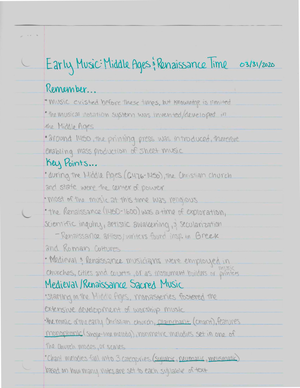 Early Music: Middle Ages & Renaissance Time 03/31/2020
Remember...
• music existed before these times, but knowledge is limited
• the musical notation systems was invented/developed in
the Middle Ages
• around 1450, the printing press was introduced, therefore
enabling mass production of sheet music
Key Points...
• during the Middle Ages (476-1450), the Christian church
and state were the center of power
• most of the music at this time was religious
• the Renaissance (1450-1600) was a time of exploration,
scientific inquiry, artistic awakening, & secularization
- Renaissance artists, writers found in Greek
and Roman cultures
• Medieval & Renaissance musicians were employed in
churches, cities and courts, or as instrument builders or music printers
Medieval/Renaissance Sacred Music
• starting in the Middle Ages, monasteries fostered the
extensive development of worship music
• the music of the early Christian church, (chant), features
monophonic (single-line melody), nonmetric melodies set in one of
the church modes, or scales
• Chant melodies fall into 3 categories (syllabic, neumatic, melismatic)
based on how many notes are set to each syllable of text